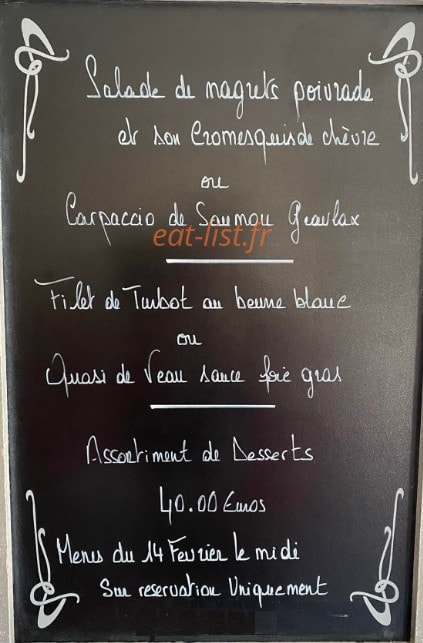 Salade de magrets poivrade
et son Cromesquis de chèvre
ou
Carpaccio de Saumou Gravlax
eat-list.fr
Filet de Turbot au beurre blanc
ou
Quasi de Veau sauce foie gras
Assortiment de Desserts
40.00 Euros
Menu du 14 Fevrier le midi
Sur reservation Uniquement